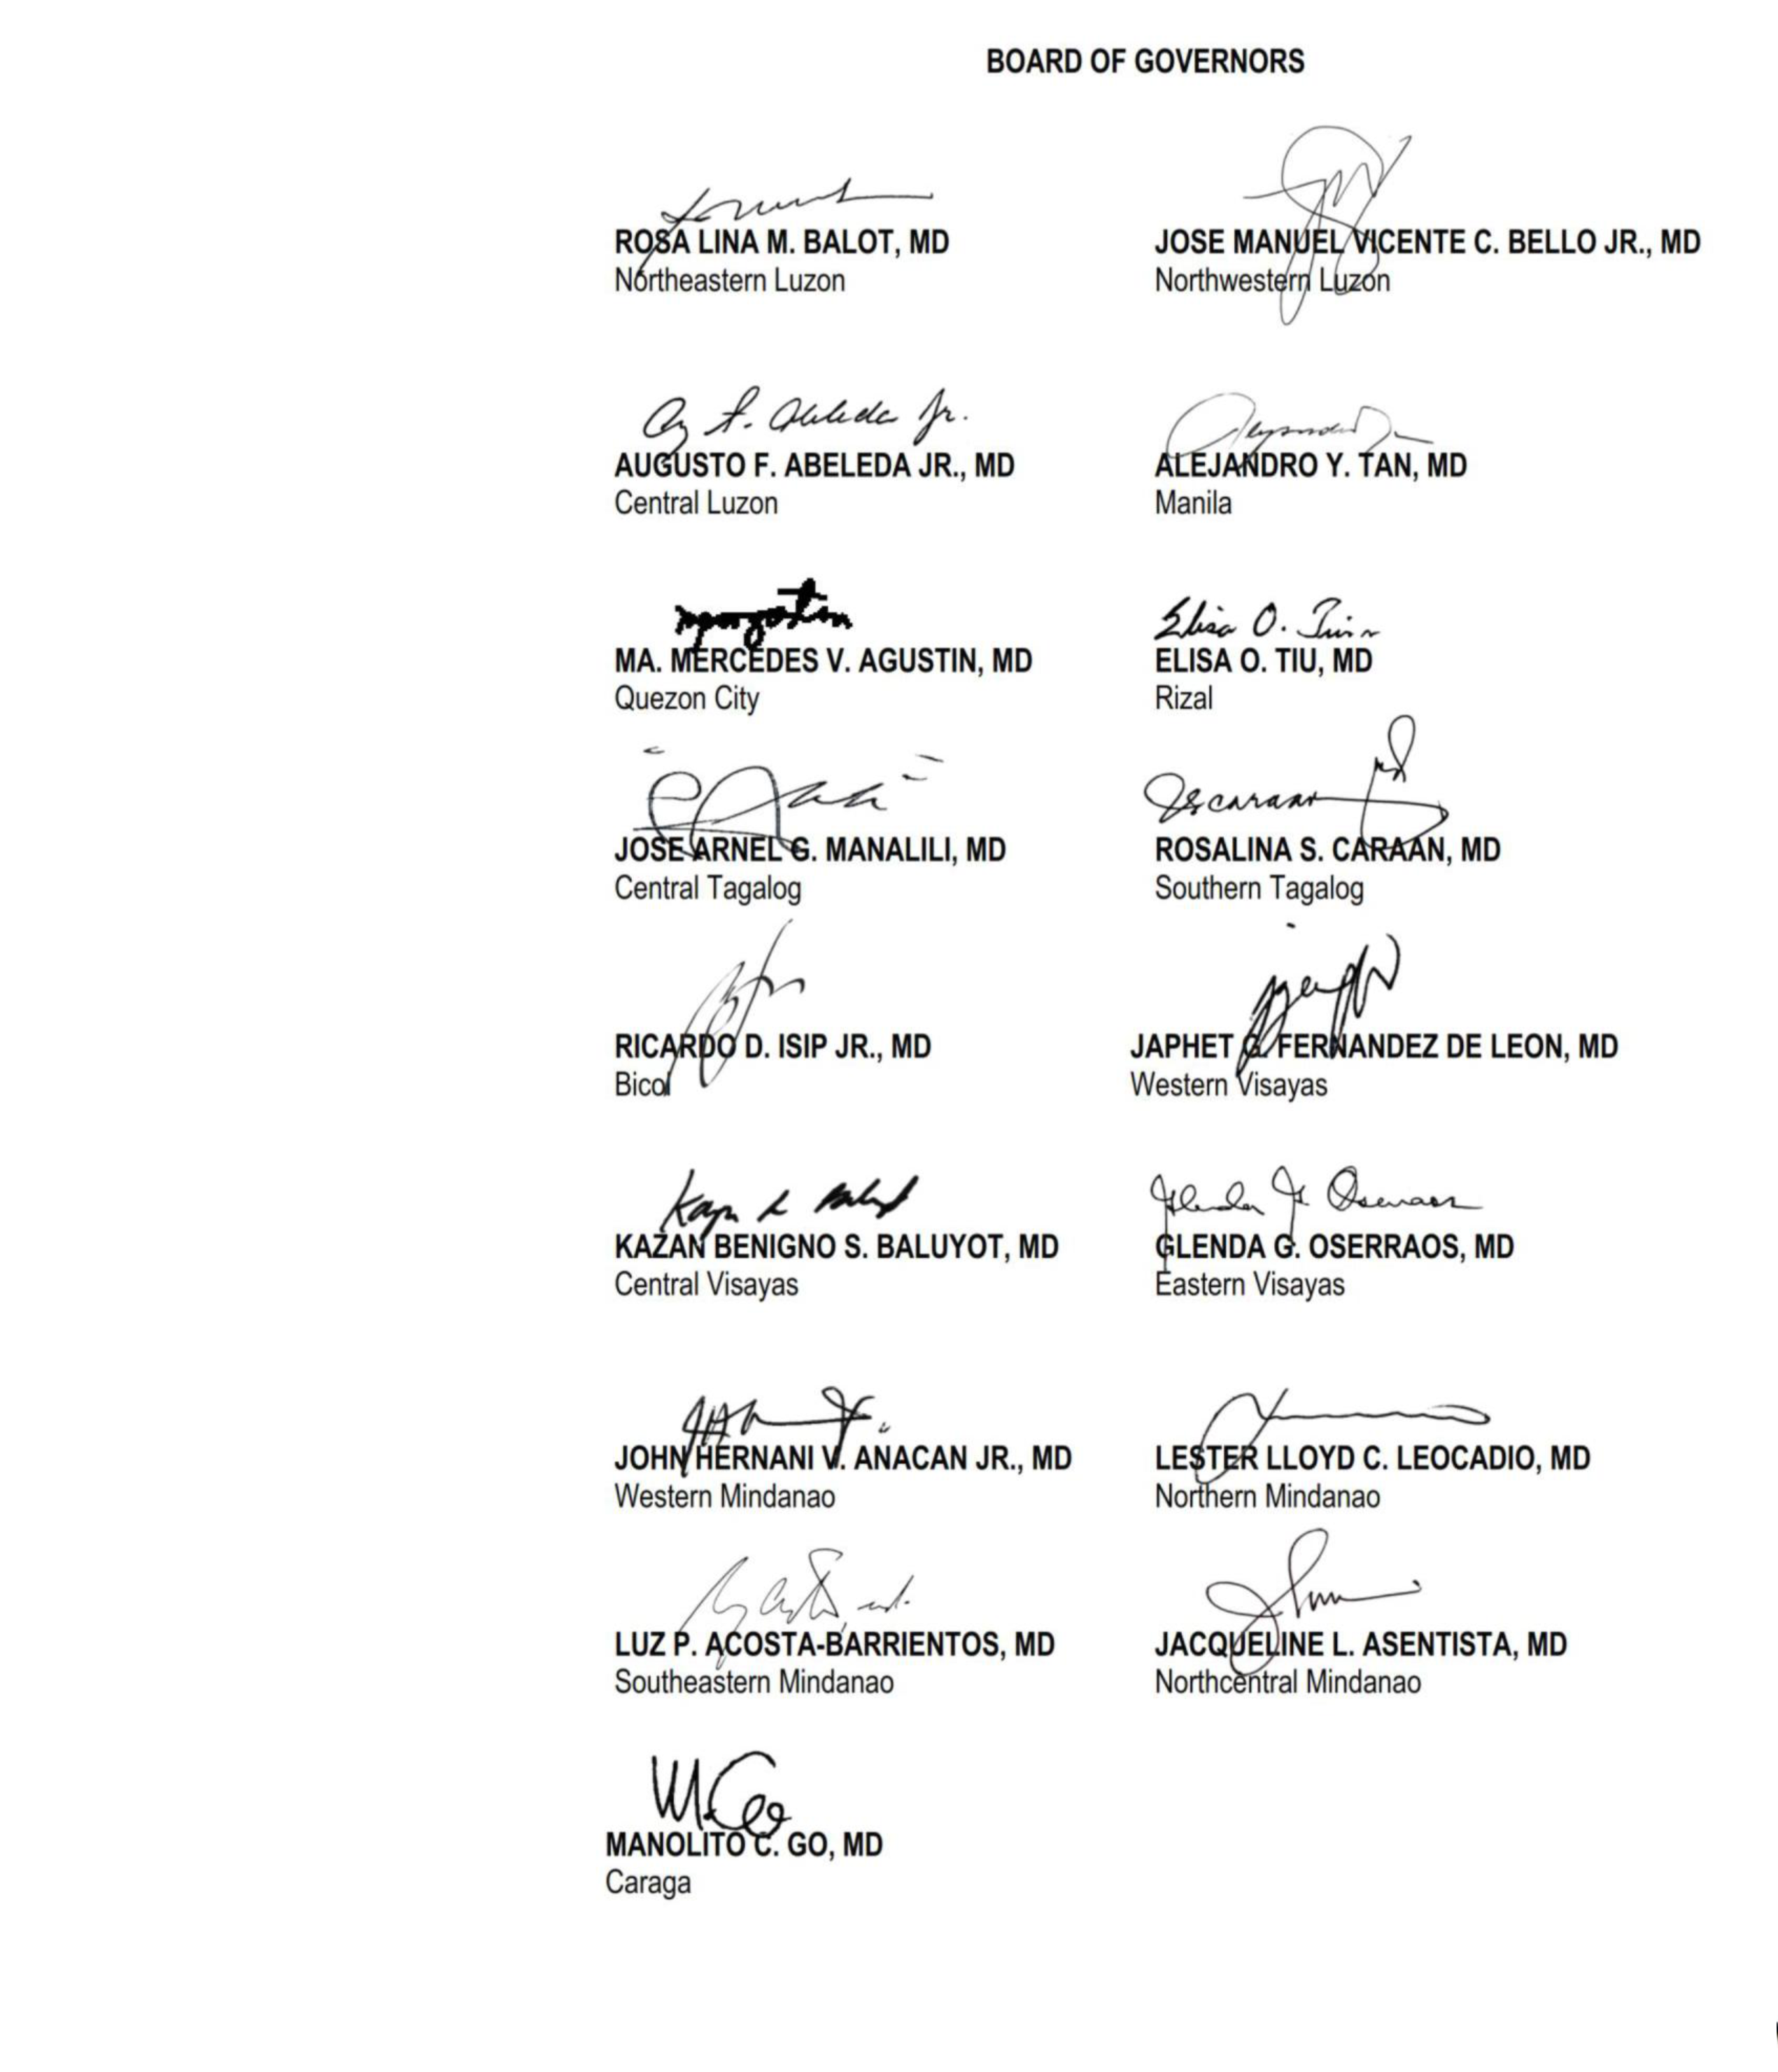 BOARD OF GOVERNORS
ROSA LINA M. BALOT, MD
Northeastern Luzon
JOSE MANUEL VICENTE C. BELLO JR., MD
Northwestern Luzon
AUGUSTO F. ABELEDA JR., MD
Central Luzon
ALEJANDRO Y. TAN, MD
Manila
MA. MERCEDES V. AGUSTIN, MD
Quezon City
Elisa O.
ELISA O. TIU, MD
Rizal
JOSE ARNEL G. MANALILI, MD
Central Tagalog
ROSALINA S. CARAAN, MD
Southern Tagalog
RICARDO D. ISIP JR., MD
Bicol
JAPHET G. FERNANDEZ DE LEON, MD
Western Visayas
KAZAN BENIGNO S. BALUYOT, MD
Central Visayas
GLENDA G. OSERRAOS, MD
Eastern Visayas
JOHN HERNANI V. ANACAN JR., MD
Western Mindanao
LESTER LLOYD C. LEOCADIO, MD
Northern Mindanao
LUZ P. ACOSTA-BARRIENTOS, MD
Southeastern Mindanao
JACQUELINE L. ASENTISTA, MD
Northcentral Mindanao
MANOLITO C. GO, MD
Caraga